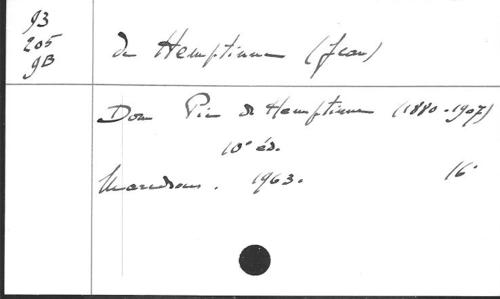 93
205
9B
de Hemptinne (Jean)
Dom Pie de Hemptinne (1880-1907)
10e éd.
Maredsous. 1963. 16°